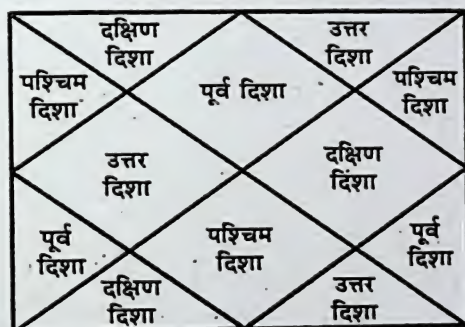 दक्षिण
दिशा
उत्तर
दिशा
पश्चिम
दिशा
पूर्व दिशा
पश्चिम
दिशा
उत्तर
दिशा
दक्षिण
दिंशा
पूर्व
दिशा
पश्चिम
दिशा
पूर्व
दिशा
दक्षिण
दिशा
उत्तर
दिशा